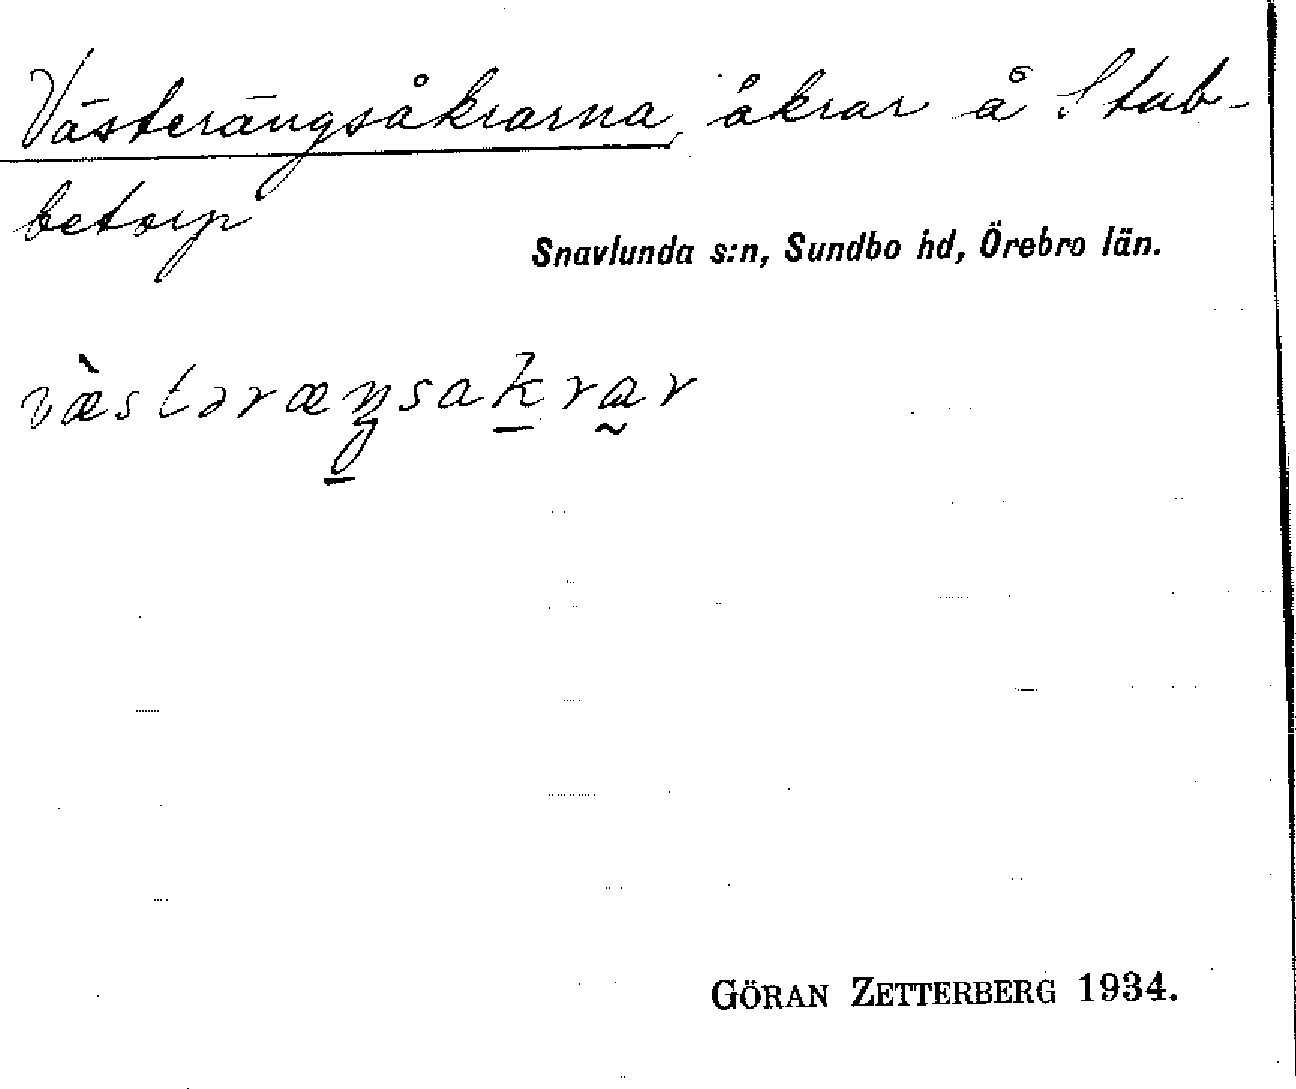 Västerängsåkrarna, åkrar å Stub-
betorp
Snavlunda s:n, Sundbo hd, Örebro län.
væ̀stəræŋsakrar
GÖRAN ZETTERBERG 1934.